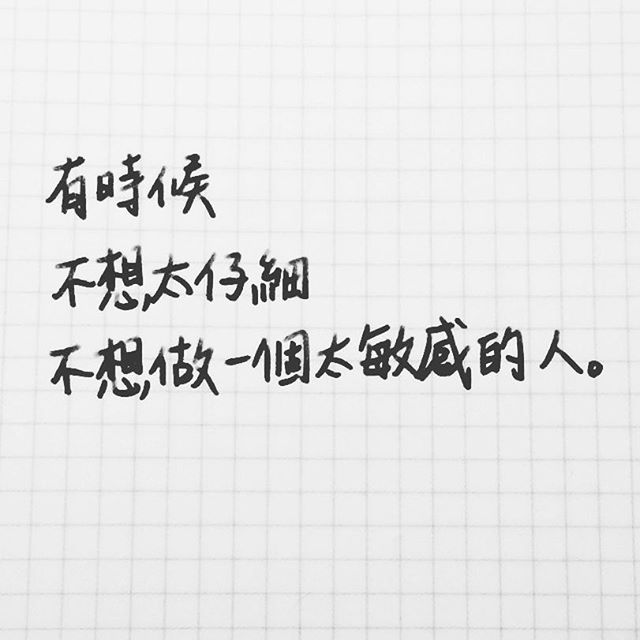 有時候
不想太仔細
不想做一個太敏感的人。